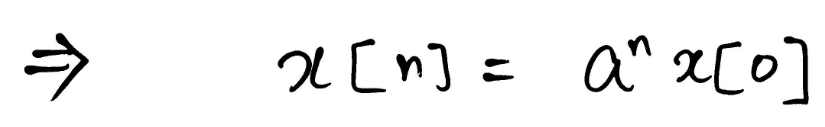 ⇒ x[n] = aⁿ x[0]